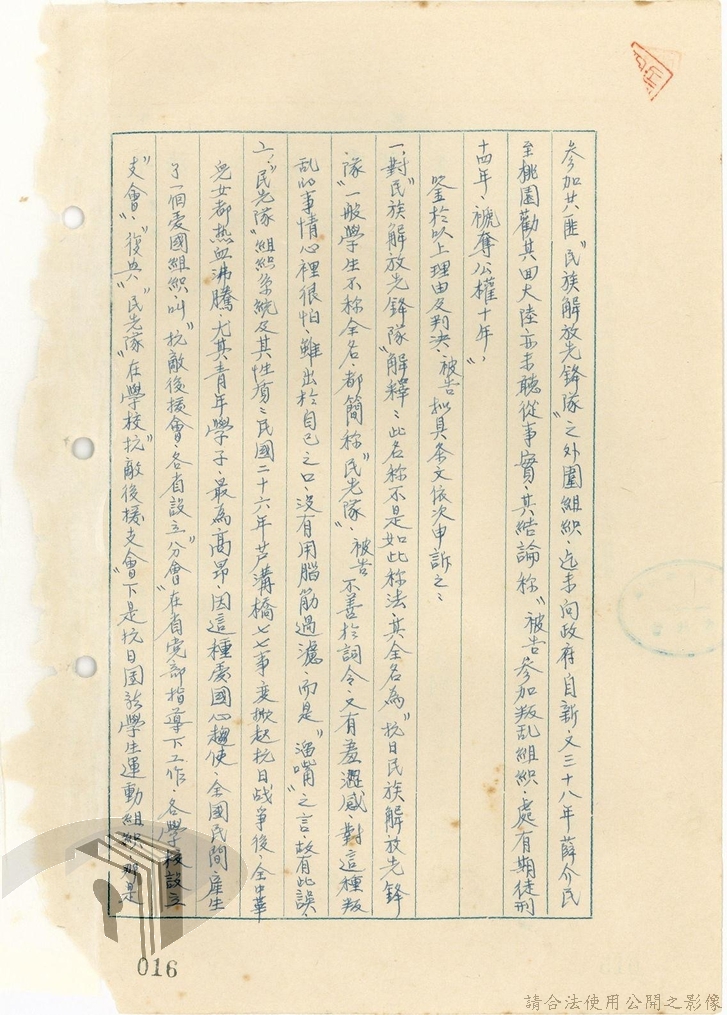 參加共匪"民族解放先鋒隊"之外圍組織、迄未向政府自新、又三十八年薛介民
至桃園勸其回大陸、亦未聽從事實、其結論称、"被告參加叛乱組織、處有期徒刑
十四年、褫奪公權十年"、
鉴於以上理由及判决、被告拟具条文依次申訴之：
一、對"民族解放先鋒隊"解釋：此名称不是如此称法、其全名為"抗日民族解放先鋒
隊"一般學生不称全名、都簡称"民先隊"、被告不善於詞令、又有羞澀感、對這種叛
乱的事情心裡很怕、雖出於自己之口、没有用腦筋過濾、而是"溜嘴"之言、故有此誤、
二、"民先隊"組織系統及其性質：民國二十六年芦溝橋七七事变掀起抗日战爭後、全中華
兒女都热血沸騰、尤其青年學子、最為高昂、因這種愛國心趨使、全國民間產生
了一個愛國組織、叫"抗敵後援會、各省設立"分會"在省党部指導下工作、各學校設立
"支會"、"復興""民先隊"在學校"抗敵後援支會"下是抗日國設學生運動組織、那是
016
請合法使用公開之影像